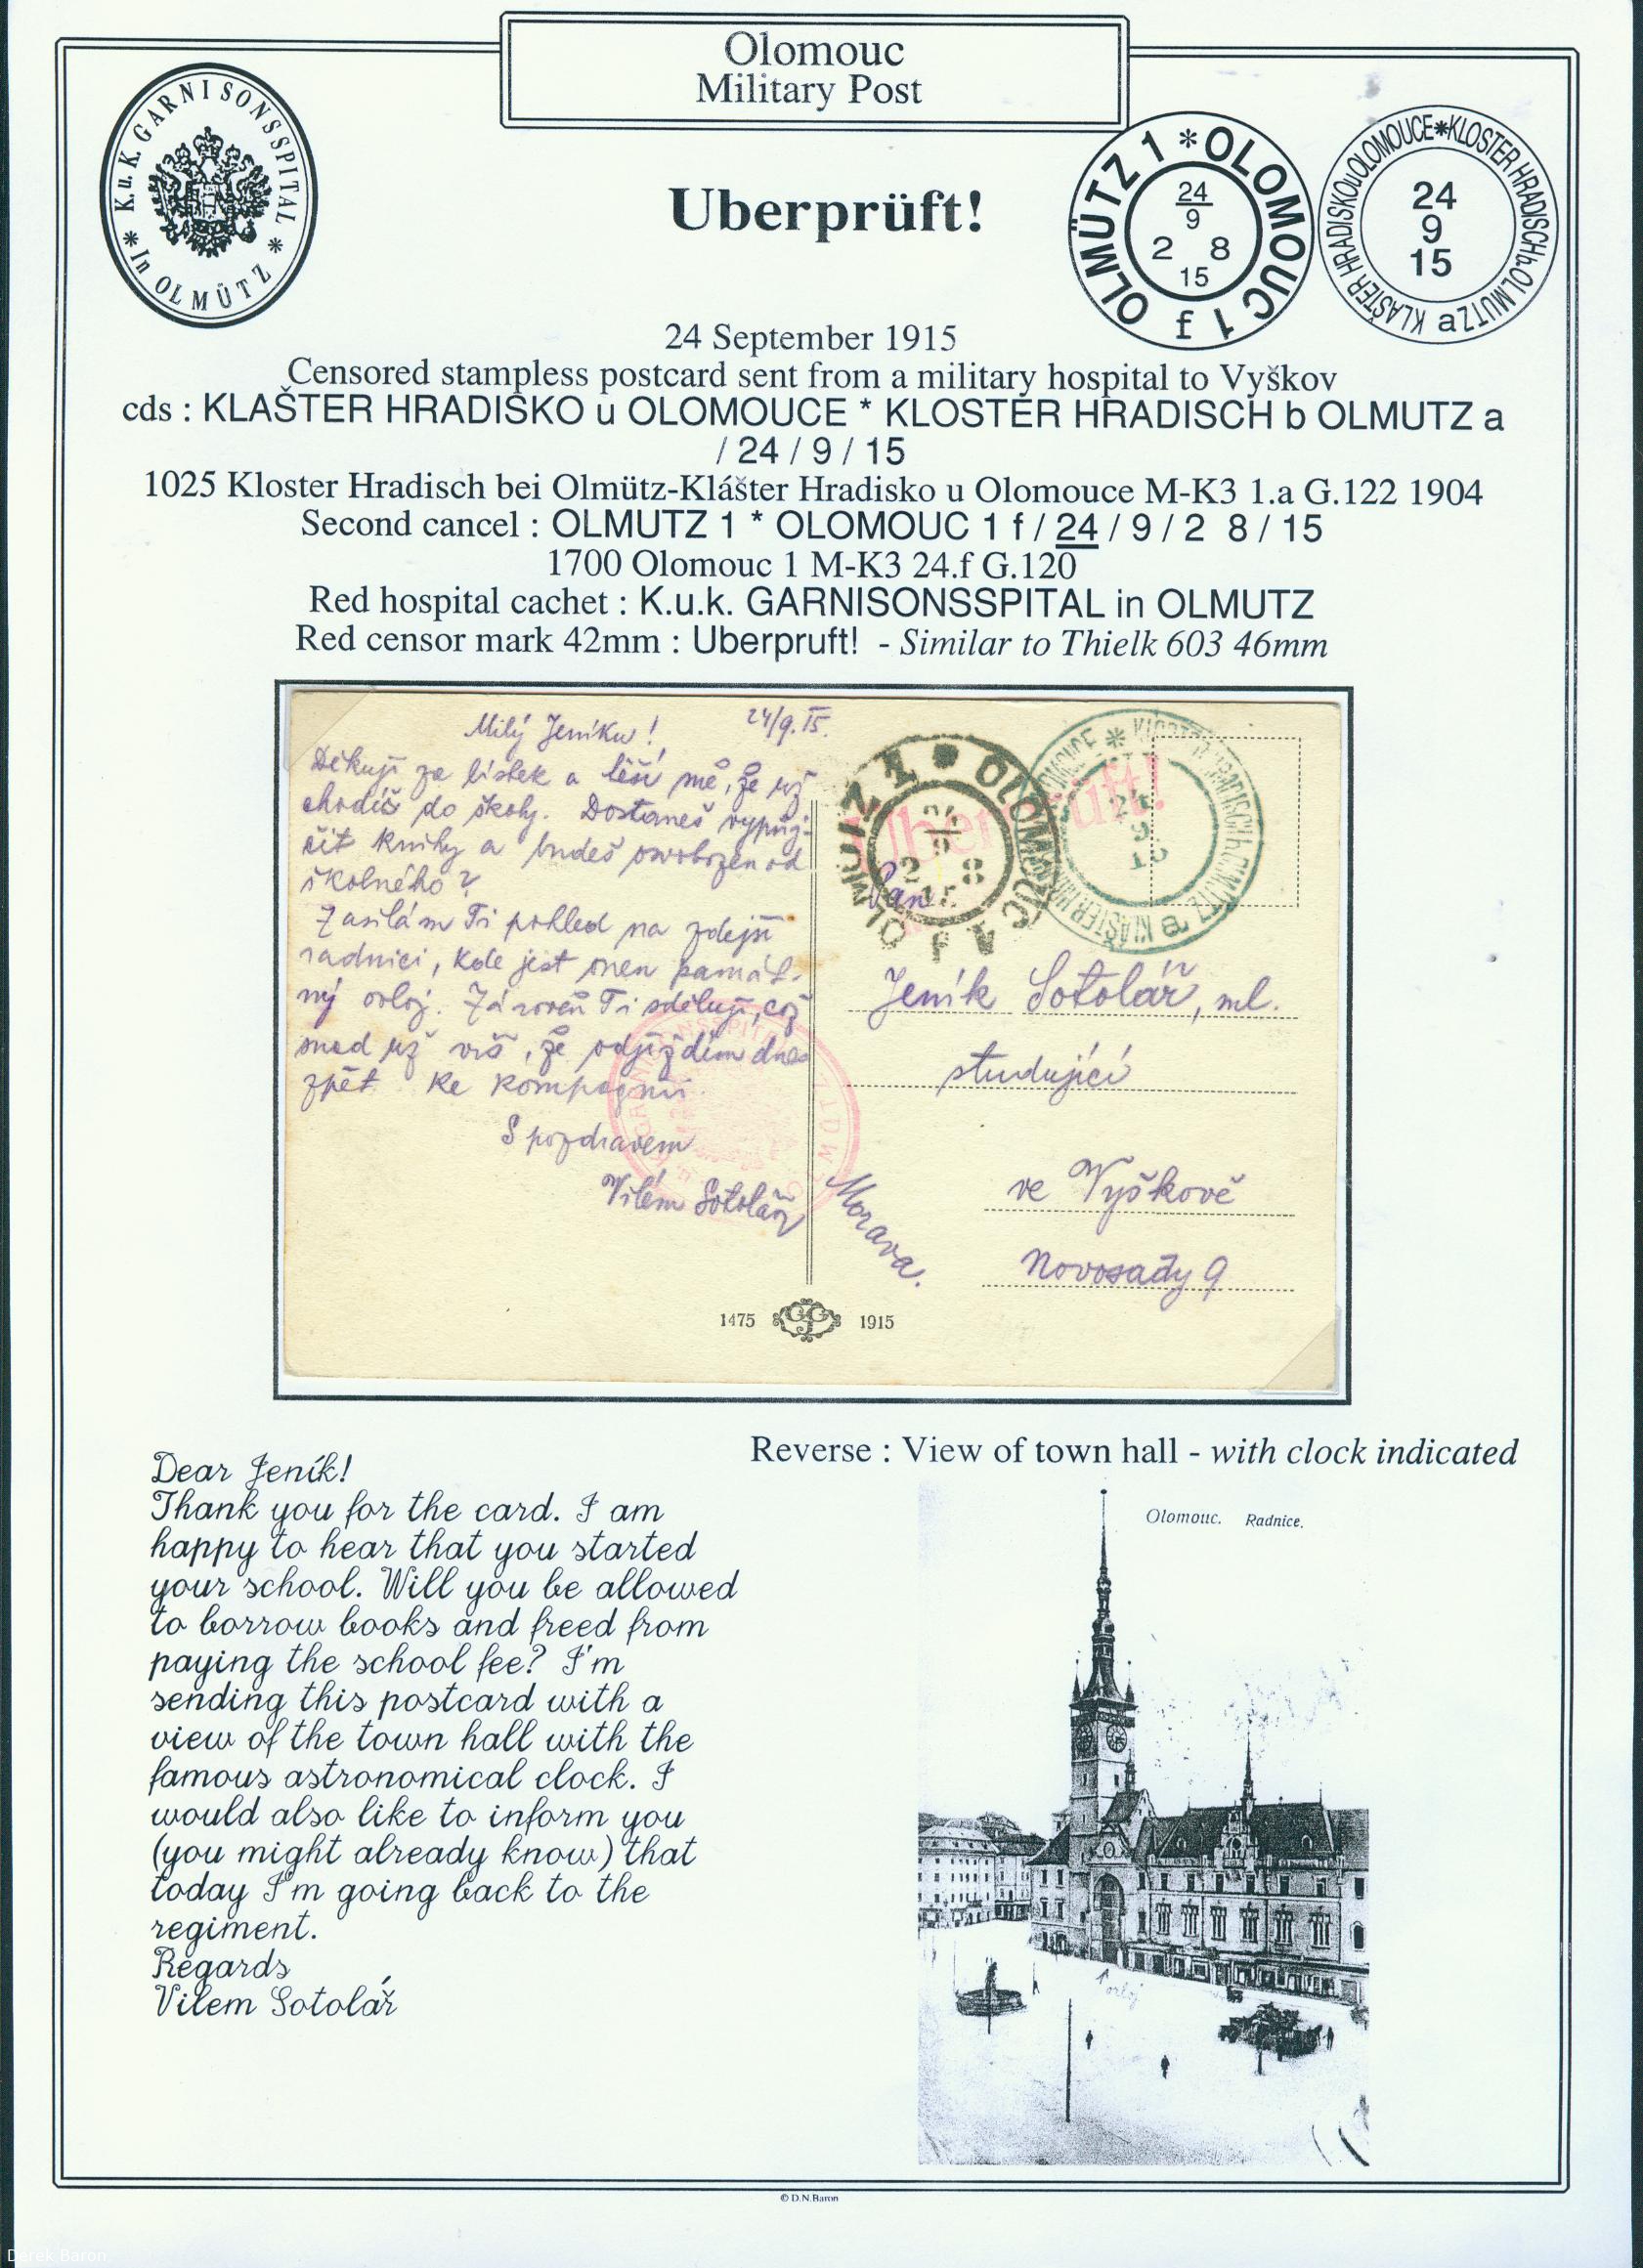 Olomouc
Military Post
K.u.K. GARNISONSSPITAL
* In OLMÜTZ *
Uberprüft!
OLMÜTZ 1 * OLOMOUC 1 f
24
9
2 8
15
KLAŠTER HRADISKO u OLOMOUCE * KLOSTER HRADISCH b. OLMUTZ a
24
9
15
24 September 1915
Censored stampless postcard sent from a military hospital to Vyškov
cds : KLAŠTER HRADISKO u OLOMOUCE * KLOSTER HRADISCH b OLMUTZ a
/ 24 / 9 / 15
1025 Kloster Hradisch bei Olmütz-Klášter Hradisko u Olomouce M-K3 1.a G.122 1904
Second cancel : OLMUTZ 1 * OLOMOUC 1 f / 24 / 9 / 2 8 / 15
1700 Olomouc 1 M-K3 24.f G.120
Red hospital cachet : K.u.k. GARNISONSSPITAL in OLMUTZ
Red censor mark 42mm : Uberpruft! - Similar to Thielk 603 46mm
Milý Jeníku! 24/9. 15.
Děkuji za lístek a těší mě, že už
chodíš do školy. Dostaneš vypůj-
čit knihy a budeš osvobozen od
školného?
Zasílám Ti pohled na zdejší
radnici, kde jest onen památ-
ný orloj. Zároveň Ti sděluji, což
snad už víš, že odjíždím dnes
zpět ke kompagnii.
S pozdravem
Vilém Sotolář
Überprüft!
Pan
Jeník Sotolář, ml.
studující
ve Vyškově
Novosady 9
Morava.
1475 1915
Reverse : View of town hall - with clock indicated
Dear Jeník!
Thank you for the card. I am
happy to hear that you started
your school. Will you be allowed
to borrow books and freed from
paying the school fee? I'm
sending this postcard with a
view of the town hall with the
famous astronomical clock. I
would also like to inform you
(you might already know) that
today I'm going back to the
regiment.
Regards
Vilém Sotolář
Olomouc. Radnice.
orloj
© D.N.Baron
Darek Baron,